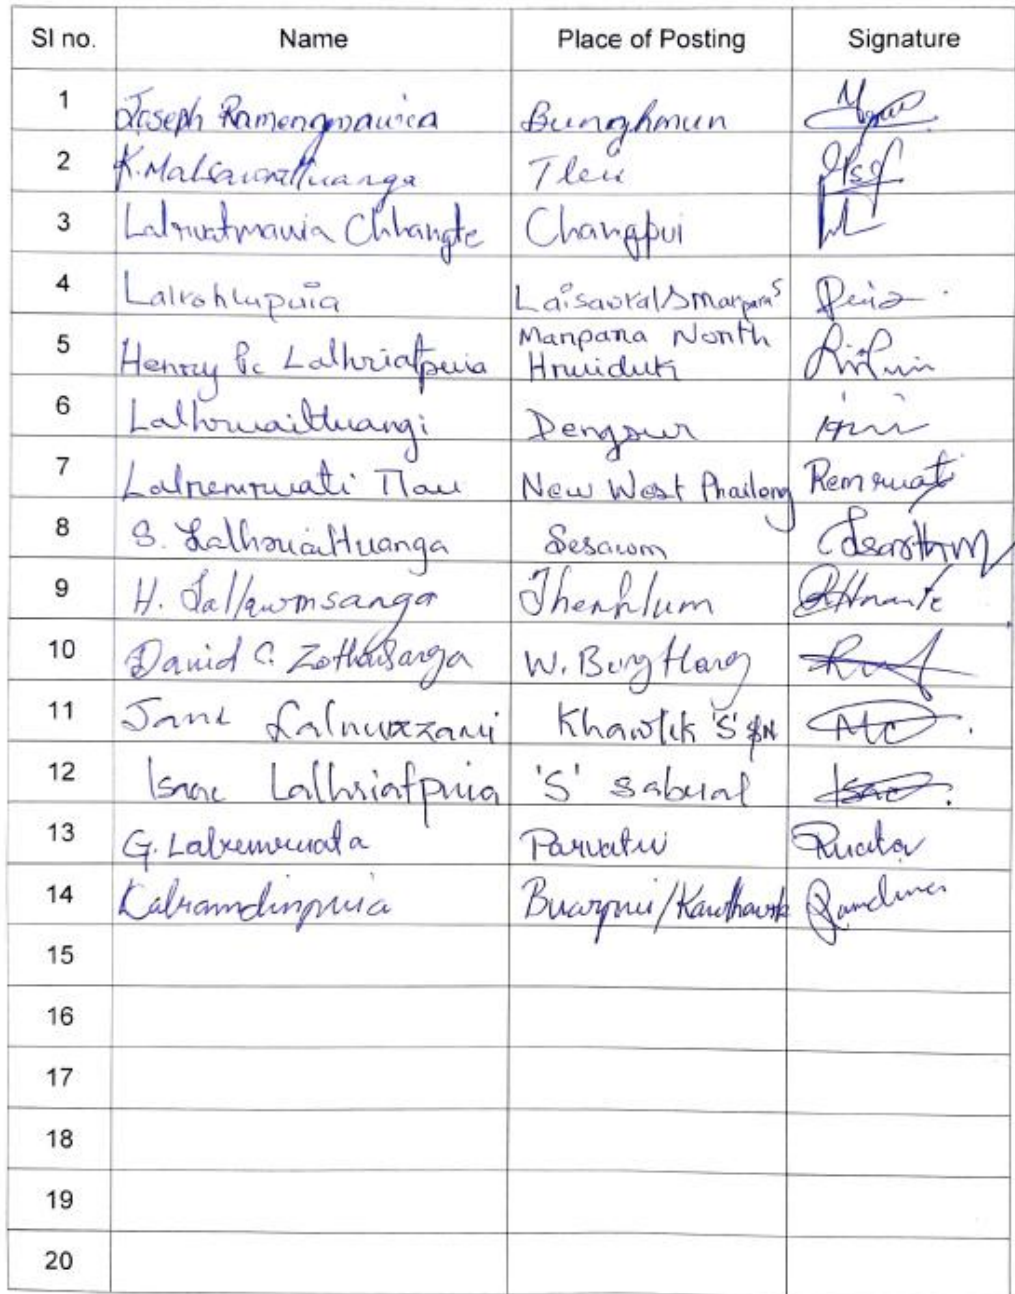 SI no. Name Place of Posting Signature
1 Joseph Ramengmawia Bunghmun
2 K. Malsawmtluanga Tleu
3 Lalruatmawia Chhangte Changpui
4 Lalrohlupuia Laisawral S
5 Henry Lc Lalhriatpuia Marpara North Hruiduk
6 Lalhruaitluangi Dengsur
7 Lalremruati Tlau New West Phaileng Remruati
8 S. Lalhruaitluanga Sesawm
9 H. Lallawmsanga Thenhlum
10 David C. Zothansanga W. Bungtlang
11 Jane Lalnunzani Khawlek 'S' &N
12 Isaac Lalhriatpuia 'S' Sabual Isac
13 G. Lalremruata Parvatui Ruata
14 Lalramdinpuia Buarpui/Kawlhawk Ramdina
15
16
17
18
19
20